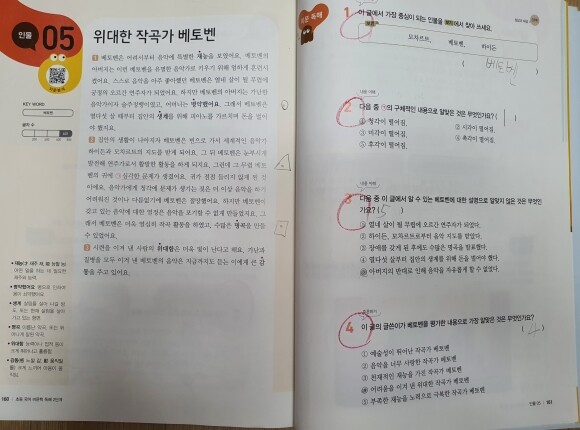 인물
05
위대한 작곡가 베토벤
KEY WORD
베토벤
글자 수
1 베토벤은 어려서부터 음악에 특별한 재능을 보였어요. 베토벤의
아버지는 어린 베토벤을 유명한 음악가로 키우기 위해 엄하게 훈련시
켰어요. 스스로 음악을 아주 좋아했던 베토벤은 열세 살이 될 무렵에
궁정의 오르간 연주자가 되었어요. 하지만 베토벤의 아버지는 가난한
음악가이자 술주정뱅이였고, 어머니는 병약했어요. 그래서 베토벤은
열다섯 살 때부터 집안의 생계를 위해 피아노를 가르치며 돈을 벌어
야 했지요.
2 집안의 생활이 나아지자 베토벤은 빈으로 가서 세계적인 음악가
하이든과 모차르트의 지도를 받게 되어요. 그 뒤 베토벤은 눈부시게
발전해 연주가로서 활발한 활동을 하게 되지요. 그런데 그 무렵 베토
벤의 귀에 ㉠심각한 문제가 생겼어요. 귀가 점점 들리지 않게 된 것
이에요. 음악가에게 청각에 문제가 생기는 것은 더 이상 음악을 하기
어려워진 것이나 다름없기에 베토벤은 절망했어요. 하지만 베토벤이
갖고 있는 음악에 대한 열정은 음악을 포기할 수 없게 만들었지요. 그
래서 베토벤은 더욱 열심히 작곡 활동을 하였고, 수많은 명곡을 만들
수 있었어요.
3 시련을 이겨 낸 사람의 위대함은 더욱 빛이 난다고 해요. 가난과
질병을 모두 이겨 낸 베토벤의 음악은 지금까지도 듣는 이에게 큰 감
동을 주고 있어요.
160
1 이 글에서 가장 중심이 되는 인물을 에서 찾아 쓰세요.
모차르트, 베토벤, 하이든
베토벤
2 다음 중 ㉠의 구체적인 내용으로 알맞은 것은 무엇인가요? ( 1 )
① 청각이 떨어짐.
② 시각이 떨어짐.
③ 미각이 떨어짐.
④ 촉각이 떨어짐.
⑤ 후각이 떨어짐.
3 다음 중 이 글에서 알 수 있는 베토벤에 대한 설명으로 알맞지 않은 것은 무엇인
가요? ( 5 )
① 열세 살이 될 무렵에 오르간 연주자가 되었다.
② 하이든, 모차르트로부터 음악 지도를 받았다.
③ 장애를 갖게 된 후에도 수많은 명곡을 발표했다.
④ 열다섯 살부터 집안의 생계를 위해 돈을 벌어야 했다.
⑤ 아버지의 반대로 인해 음악을 자유롭게 할 수 없었다.
4 이 글의 글쓴이가 베토벤을 평가한 내용으로 가장 알맞은 것은 무엇인가요?
( 4 )
① 예술성이 뛰어난 작곡가 베토벤
② 음악을 너무 사랑한 작곡가 베토벤
③ 천재적인 재능을 가진 작곡가 베토벤
④ 어려움을 이겨 낸 위대한 작곡가 베토벤
⑤ 부족한 재능을 노력으로 극복한 작곡가 베토벤
161